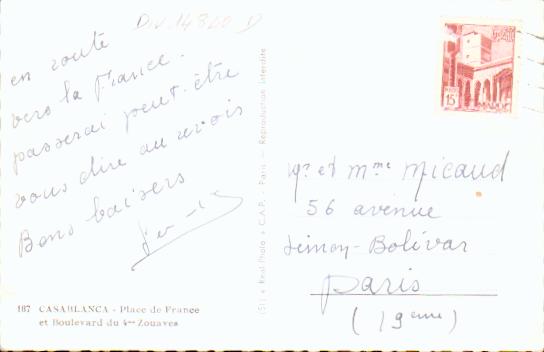 Div. 14820 D
en route
vers la France.
passerai peut-être
vous dire au revoir
Bons baisers
187 CASABLANCA - Place de France
et Boulevard du 4me Zouaves
(51) « Real-Photo » C.A.P. - Paris — Reproduction interdite
15F
Mr et Mme Micaud
56 avenue
Simon-Bolivar
Paris
(19eme)